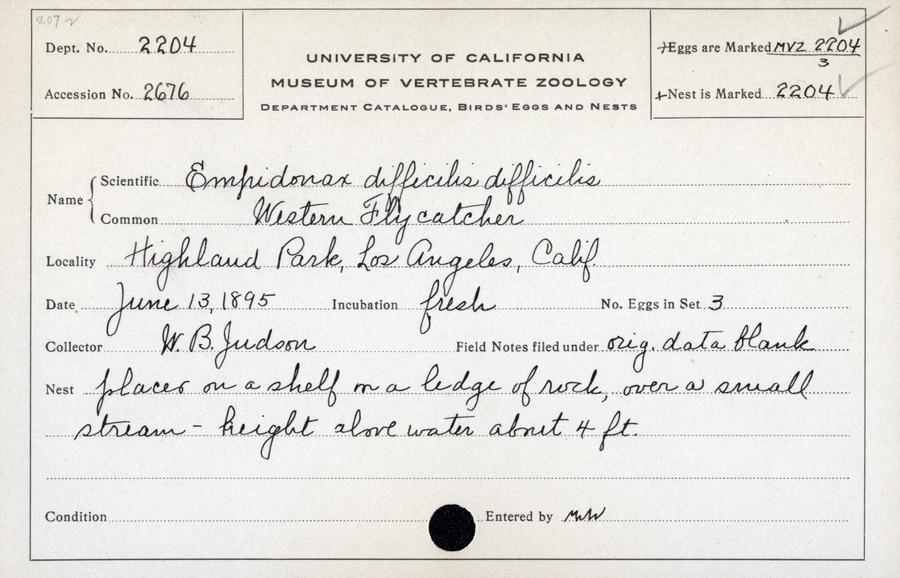 207
Dept. No. 2204
Accession No. 2676
UNIVERSITY OF CALIFORNIA
MUSEUM OF VERTEBRATE ZOOLOGY
DEPARTMENT CATALOGUE, BIRDS' EGGS AND NESTS
Eggs are Marked MVZ 2204
3
Nest is Marked 2204
Name
Scientific Empidonax difficilis difficilis
Common Western Flycatcher
Locality Highland Park, Los Angeles, Calif
Date June 13, 1895 Incubation fresh No. Eggs in Set 3
Collector W. B. Judson Field Notes filed under orig. data blank
Nest placed on a shelf on a ledge of rock, over a small
stream - height above water about 4 ft.
Condition Entered by